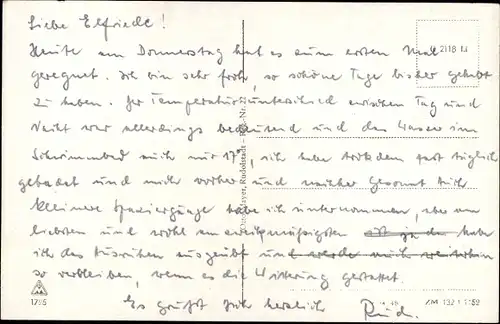 Liebe Elfriede!
Heute am Donnerstag hat es zum ersten Mal
geregnet. Ich bin sehr froh, so schöne Tage bisher gehabt
zu haben. Der Temperaturunterschied zwischen Tag und
Nacht war allerdings bedeutend und das Wasser im
Schwimmbad auch nur 17°, ich habe trotzdem fast täglich
gebadet und mich vorher und nachher gesonnt. Auch
kleinere Spaziergänge habe ich unternommen, aber am
liebsten und wohl am zweckmäßigsten habe
ich das Ausruhen ausgeübt und werde mich weiterhin
so verbleiben, wenn es die Witterung gestattet.
Es grüßt Dich herzlich Rud.
2118 L
Mayer, Rudolstadt
1795
ZM 132 1 1159